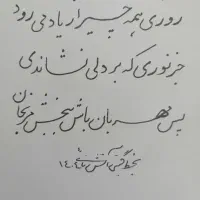 روزی همه چیز از یاد می رود
جز نوری که بر دلی نشاندی
پس مهربان باش ببخش مرنجان
بخط
۱۴۰۴